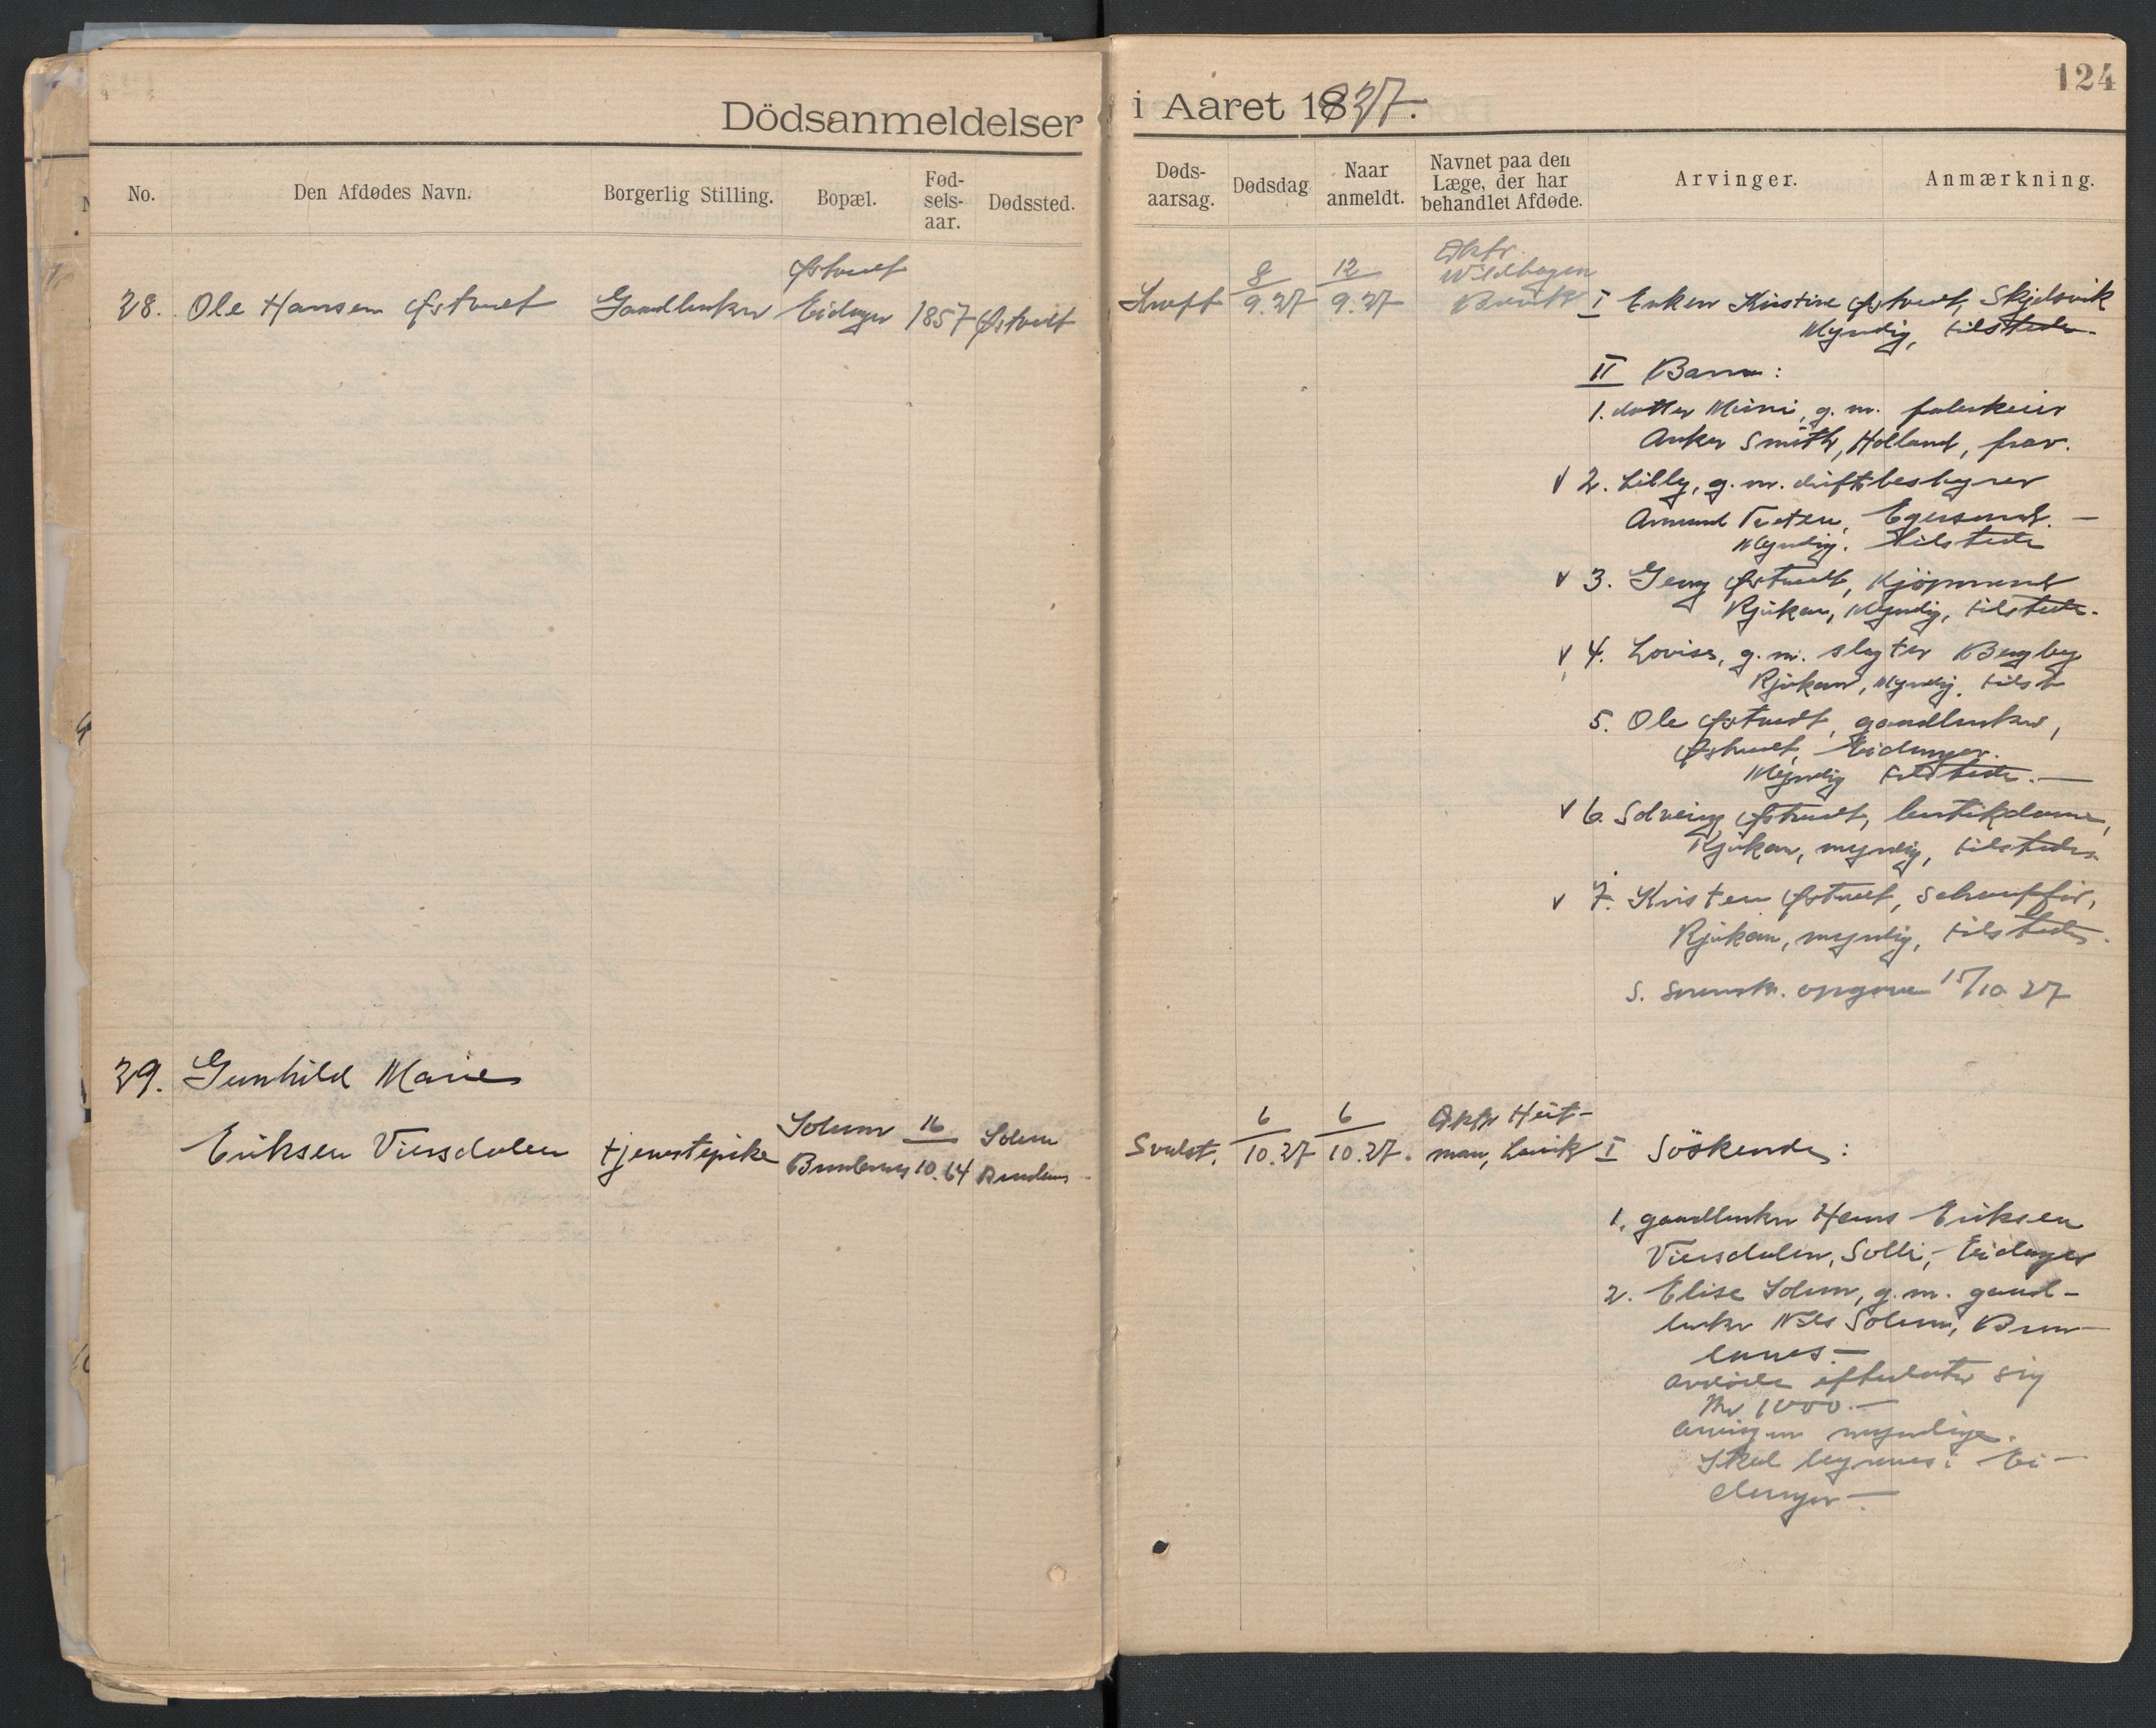 124
Dödsanmeldelser i Aaret 1927.
No.
Den Afdødes Navn.
Borgerlig Stilling.
Bopæl.
Fød-
sels-
aar.
Dødssted.
Døds-
aarsag.
Dødsdag
Naar
anmeldt.
Navnet paa den
Læge, der har
behandlet Afdøde.
Arvinger.
Anmærkning.
28. Ole Hansen Østvedt
Gaardbruker
Østvedt
Eidanger
1857
Østvedt
Kræft
8
9.27
12
9.27
Dktr.
Wildhagen
I Enken Kristine Østvedt, Skjelsvik
Myndig, tilstede.
II Barn:
1. datter Mimi, g. m.
Anker Smith, Holland, frav.
v 2. Lilly, g. m. driftsbestyrer
Amund Tveten, Egersund. —
Myndig. tilstede
v 3. Georg Østvedt, Kjöpmand
Rjukan, Myndig, tilstede.
v 4. Lovise, g. m. slagter Bergby
Rjukan, Myndig. tilst
5. Ole Østvedt, gaardbruker,
Østvedt, Eidanger.
Myndig tilstede. —
v 6. Solveig Østvedt, butikdame,
Rjukan, myndig, tilstede.
v 7. Kristen Østvedt, Schauffør,
Rjukan, myndig, tilstede.
opgave 15/10 27
29. Gunhild Marie
Eriksen Viersdalen
tjenestepike
Solum
Brunlanes
16
10.64
Solum
Brunlanes
Svulst.
6
10.27
6
10.27.
Dktr Heit-
man, Larvik
I Söskende:
1. gaardbruker Hans Eriksen
Viersdalen, Solli, Eidanger
2. Elise Solum, g. m. gaard-
bruker Nils Solum, Brun-
lanes. —
Avdöde efterlater sig
Kr 1000. —
Arvingene myndige.
Skal begraves i Ei-
danger —